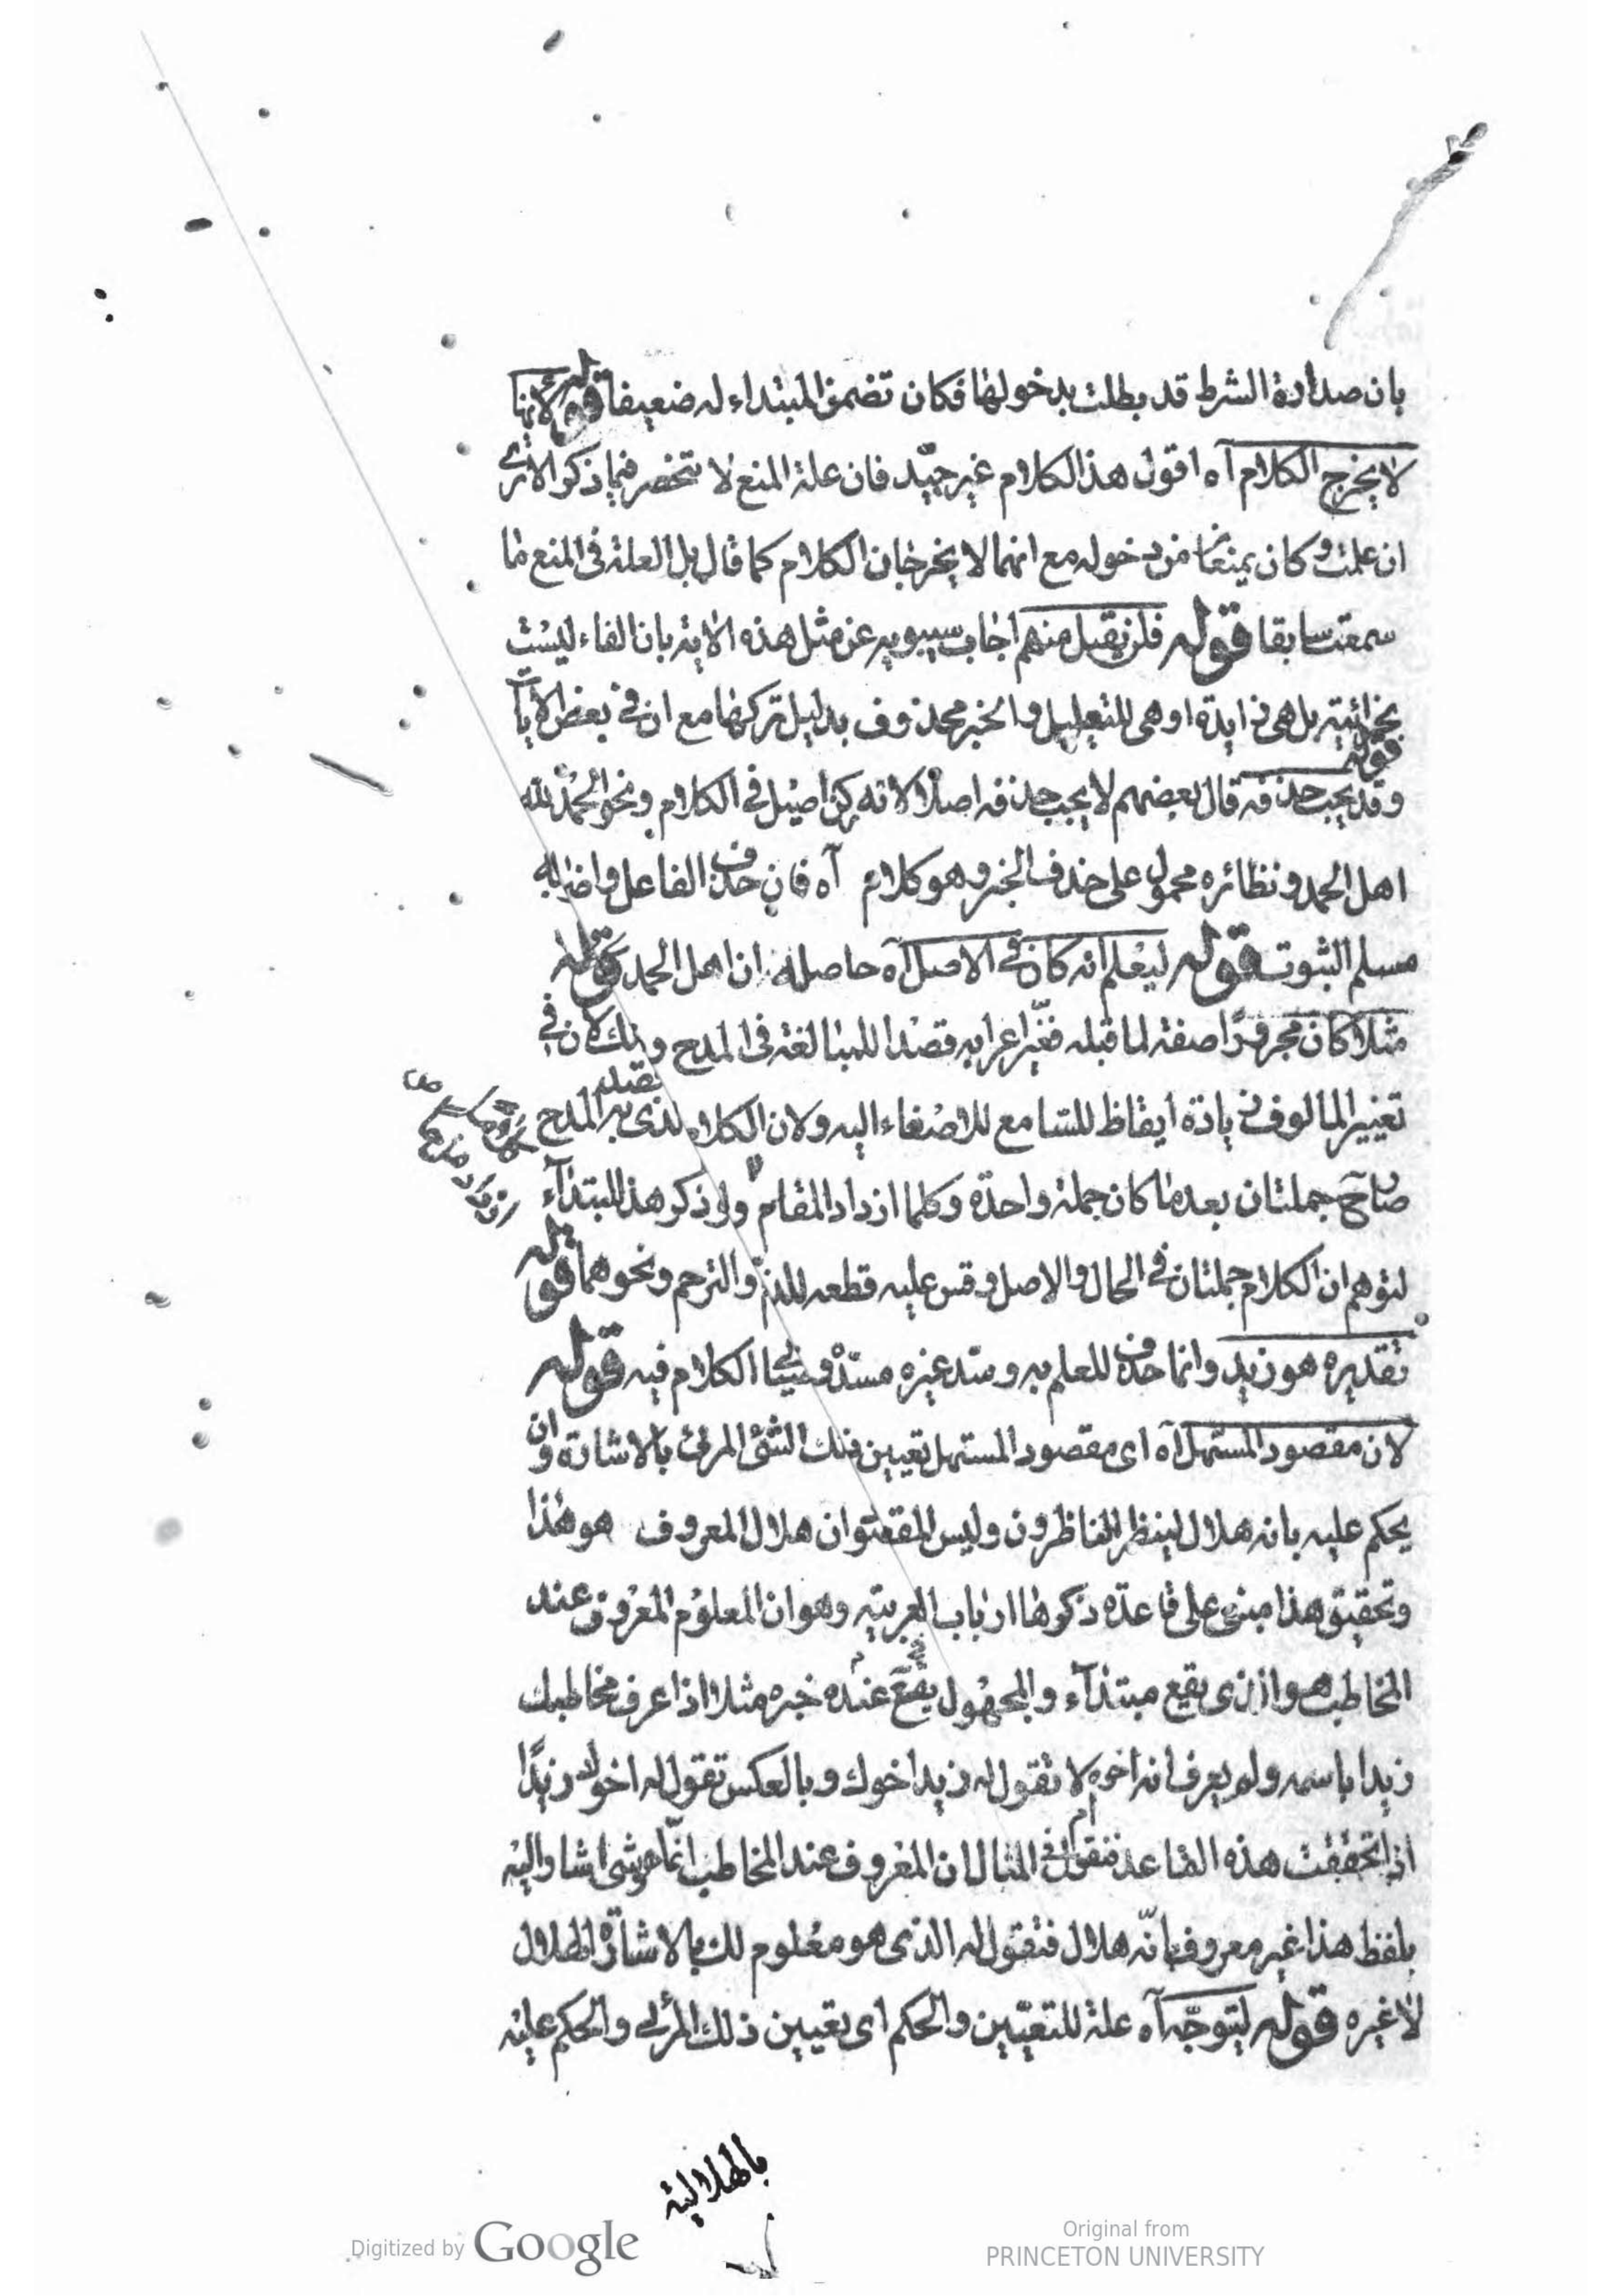 بان صدارة الشرط قد بطلت بدخولها فكان تضمن المبتداء له ضعيفا قوله لانها
لا يخرج الكلام آه اقول هذا الكلام غير جيّد فان علة المنع لا تنحصر فيما ذكر الا ترى
ان علمت وكان يمنعا من دخوله مع انهما لا يخرجان الكلام كما قال بل العلة في المنع ما
سمعت سابقا قوله فلن يقبل منهم اجاب سيبويه عن مثل هذه الاية بان الفاء ليست
بجزائية بل هي زايدة او هي للتعليل والخبر محذوف بدليل تركها مع ان في بعض الايات
قوله
وقد يجب حذفه قال بعضهم لا يجب حذفه اصلا لانه ركن اصيل في الكلام ونحو الحمد لله
اهل الحمد ونظائره محمول على حذف الخبر وهو كلام آه فان حذف الفاعل واضرابه
مسلم الثبوت قوله ليعلم انه كان في الاصل آه حاصله ان اهل الحمد قوله
مثلا كان مجرورًا صفة لما قبله فغيّر اعرابه قصدا للمبالغة في المدح وذلك لان في
تغيير المالوف زيادة ايقاظ للسامع للاصغاء اليه ولان الكلام لذى يقصد به المدح
صار ح جملتان بعد ما كان جملة واحدة وكلما ازداد المقام ولو ذكر هذا المبتداء
لتوهم ان الكلام جملتان في الحال والاصل وقس عليه قطعه للذم والترحم ونحوهما قوله
تقديره هو زيد وانما حذف للعلم به وسد غيره مسدّه الكلام فيه قوله
لان مقصود المستهل آه اى مقصود المستهل تعيين ذلك الشئ المرئى بالاشارة وان
يحكم عليه بانه هلال لينظر الناظرون وليس المقصود ان هلال المعروف هو هذا
وتحقيق هذا مبنى على قاعدة ذكرها ارباب العربية وهو ان المعلوم المعروف عند
المخاطب هو الذى يقع مبتداء والمجهول يقع عنده خبره مثلا اذا عرف مخاطبك
زيدا باسمه ولم يعرف انه اخوه لا تقول له زيد اخوك وبالعكس تقول له اخوك زيدًا
اذا تحققت هذه القاعدة فنقول في المثال ان المعروف عند المخاطب انّما هو شى اشار اليه
بلفظ هذا غير معروف بانّه هلال فتقول له الذى هو معلوم لك بالاشارة الهلال
لا غيره قوله ليتوجّه آه علة للتعيين والحكم اى تعيين ذلك المرئى والحكم عليه
بالهلالية
Digitized by Google
Original from
PRINCETON UNIVERSITY